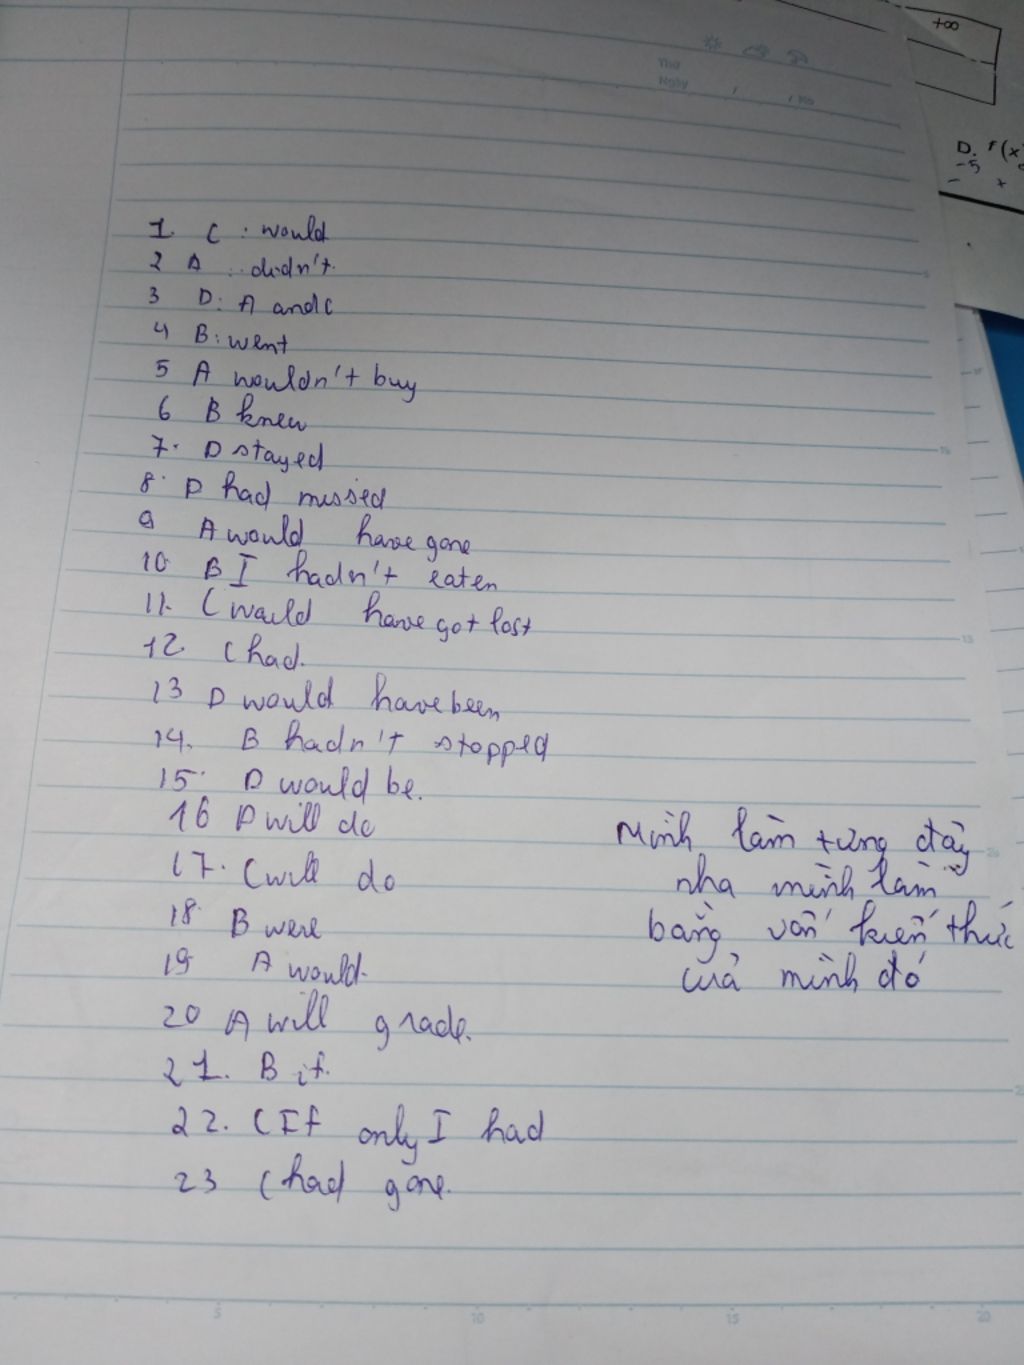 +∞
Thứ
Ngày
D. f(x
-5
- +
1. C : would
2 A : didn't.
3 D: A and C
4 B: went
5 A wouldn't buy
6 B knew
7. D stayed
8. D had missed
9 A would have gone
10. B I hadn't eaten
11. C would have got lost
12. C had.
13 D would have been
14. B hadn't stopped
15. D would be.
16 D will do
17. C will do
18. B were
19 A would.
20 A will grade.
21. B if.
22. C If only I had
23 C had gone.
Mình làm từng đây
nha mình làm
bằng vốn kiến thức
của mình đó
5 10 15 20